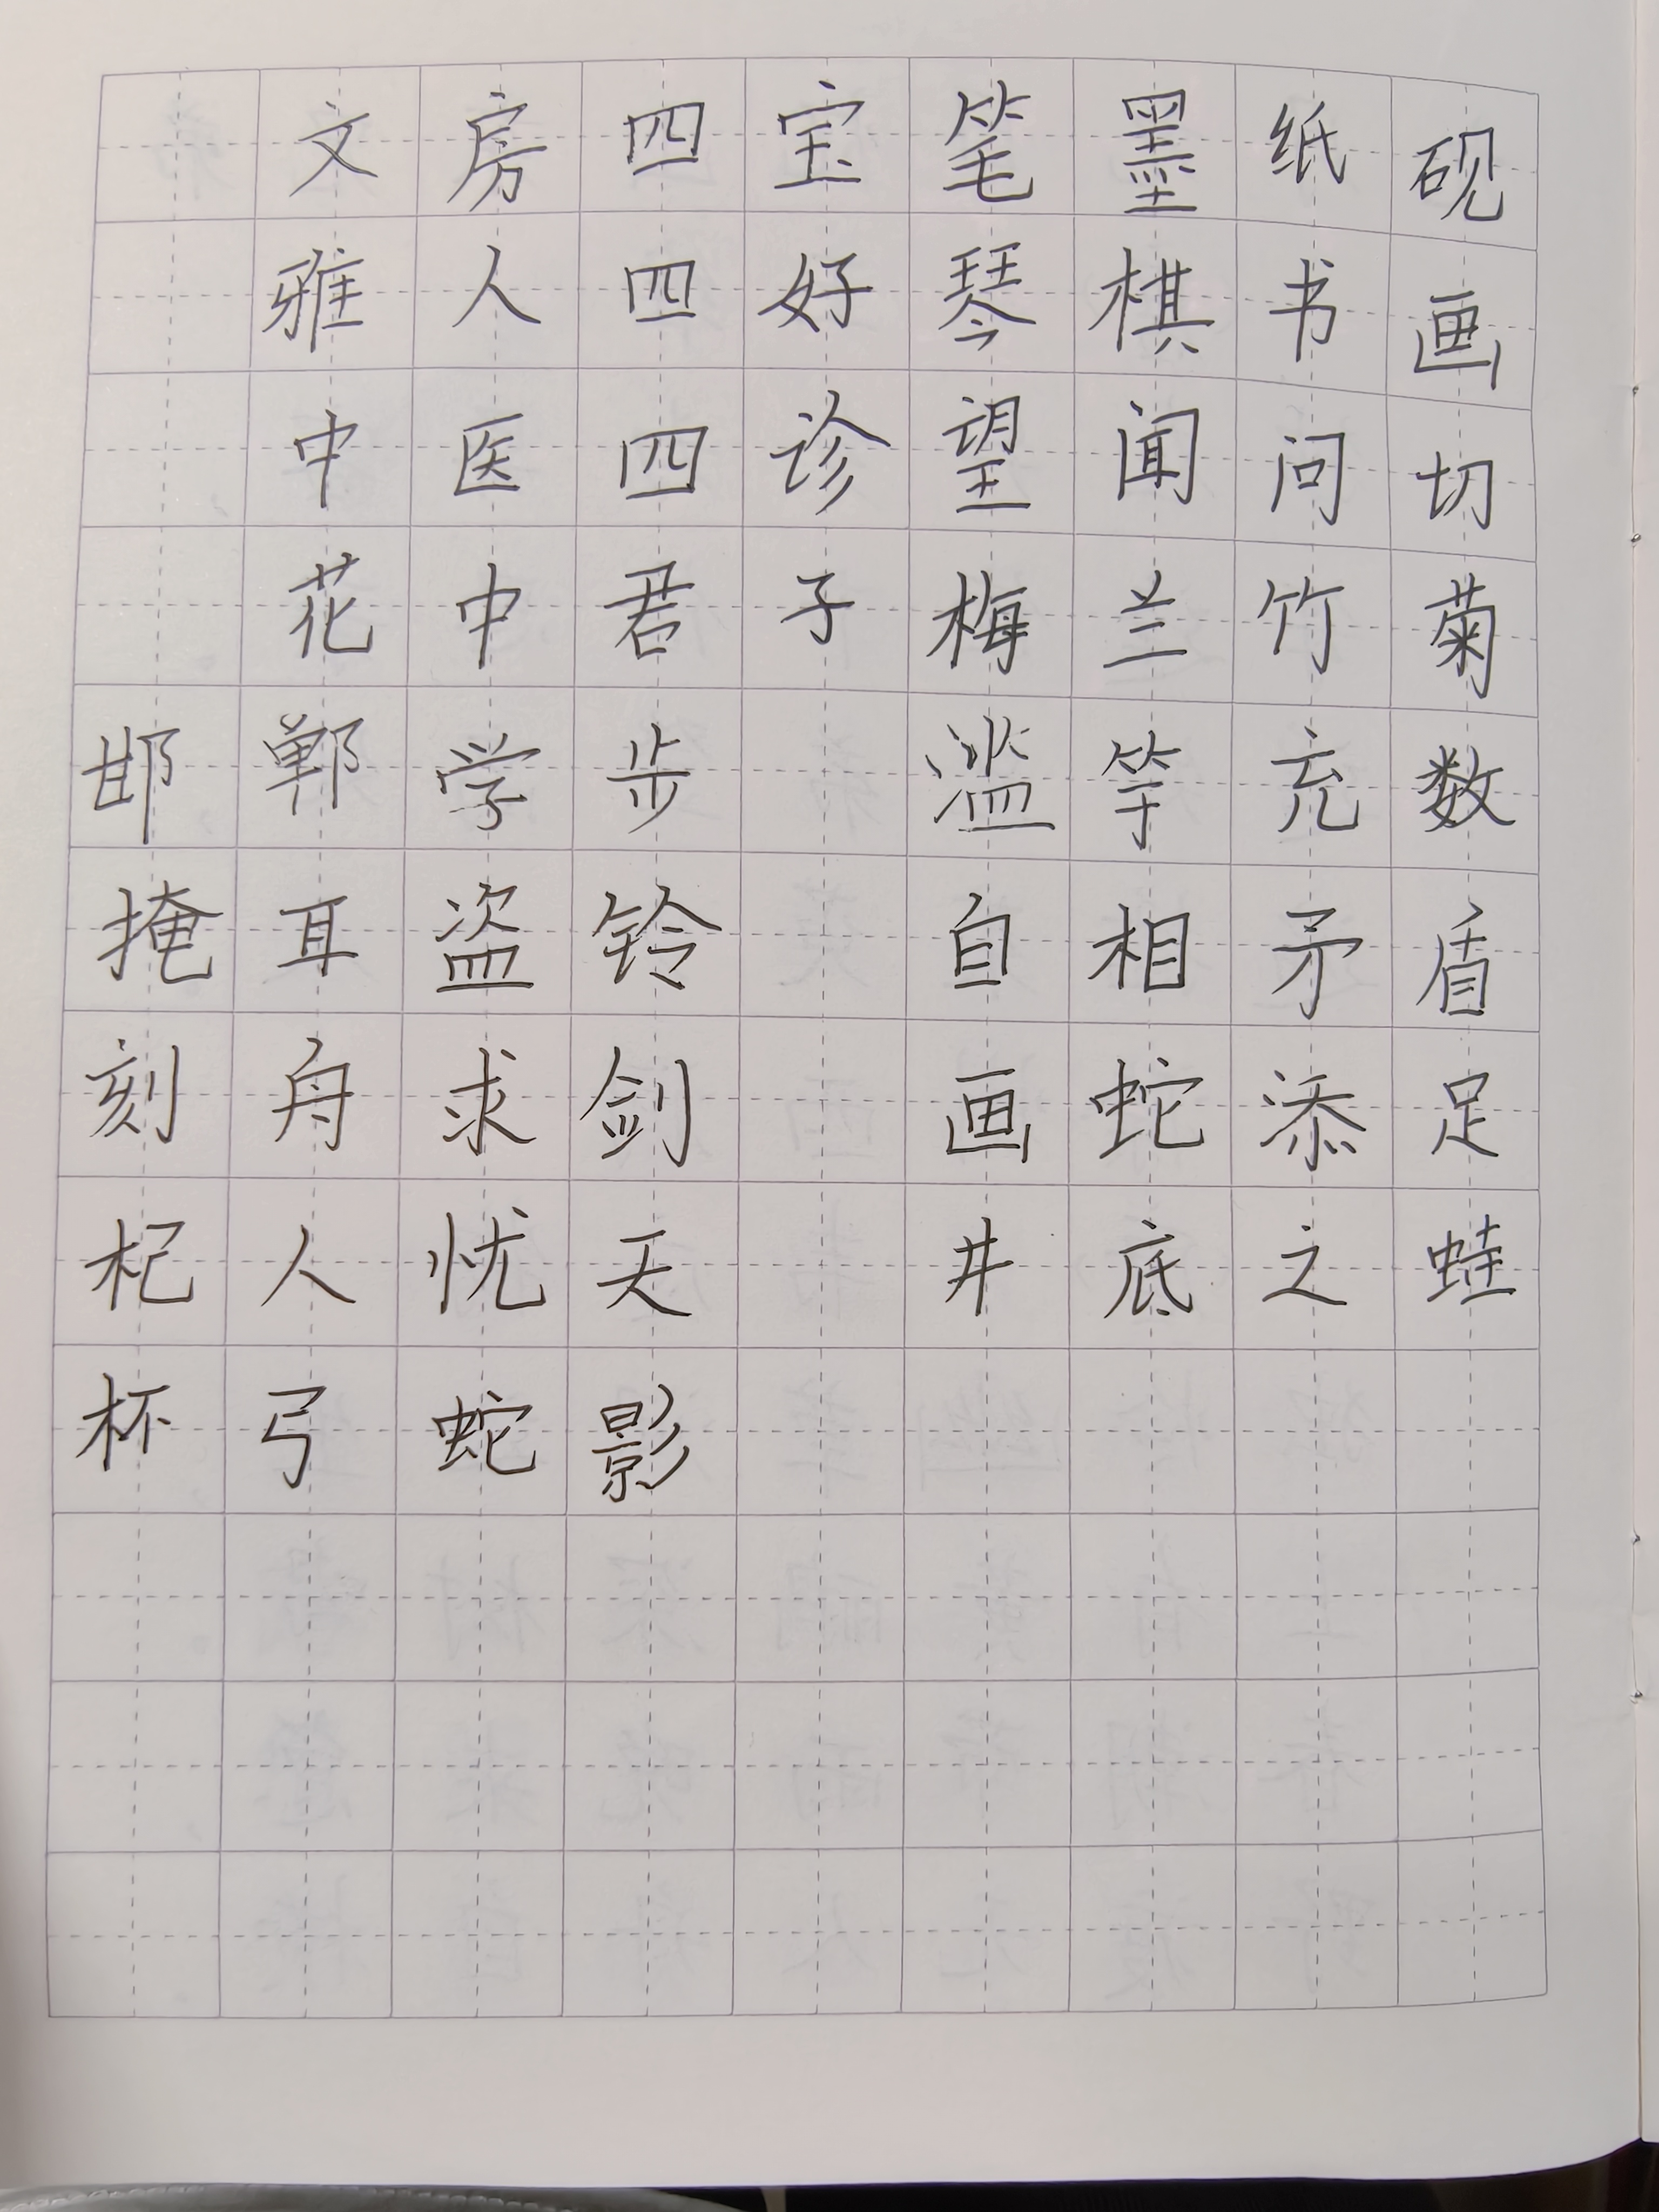 文房四宝笔墨纸砚
雅人四好琴棋书画
中医四诊望闻问切
花中君子梅兰竹菊
邯郸学步 滥竽充数
掩耳盗铃 自相矛盾
刻舟求剑 画蛇添足
杞人忧天 井底之蛙
杯弓蛇影